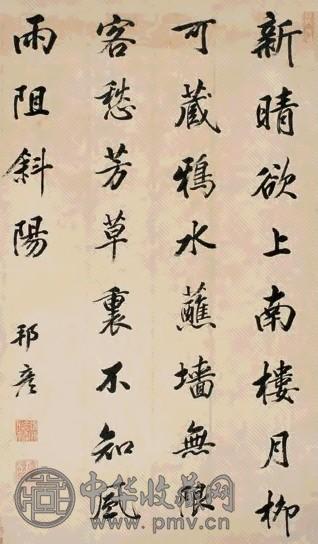 新晴欲上南樓月柳
可藏鴉水蘸墻無限
客愁芳草裏不知風
雨阻斜陽
邦彦
中华收藏网
www.pmv.cn